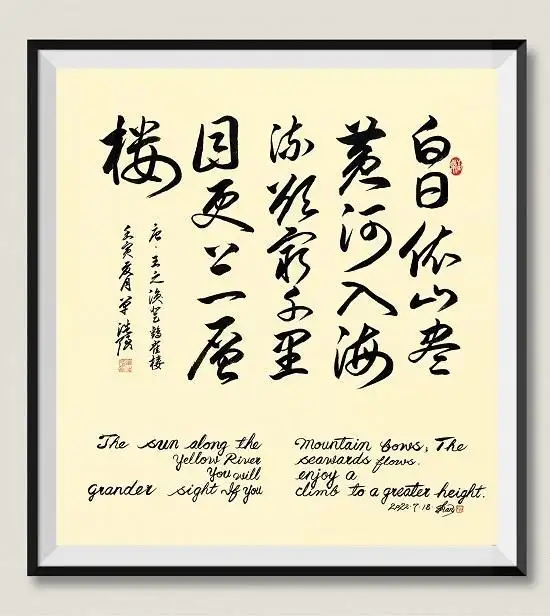 白日依山尽
黄河入海
流欲穷千里
目更上一层
楼
唐·王之涣登鹳雀楼
壬寅夏月
The sun along the Mountain bows; The
Yellow River seawards flows.
You will enjoy a
grander sight If you climb to a greater height.
2022.7.18.